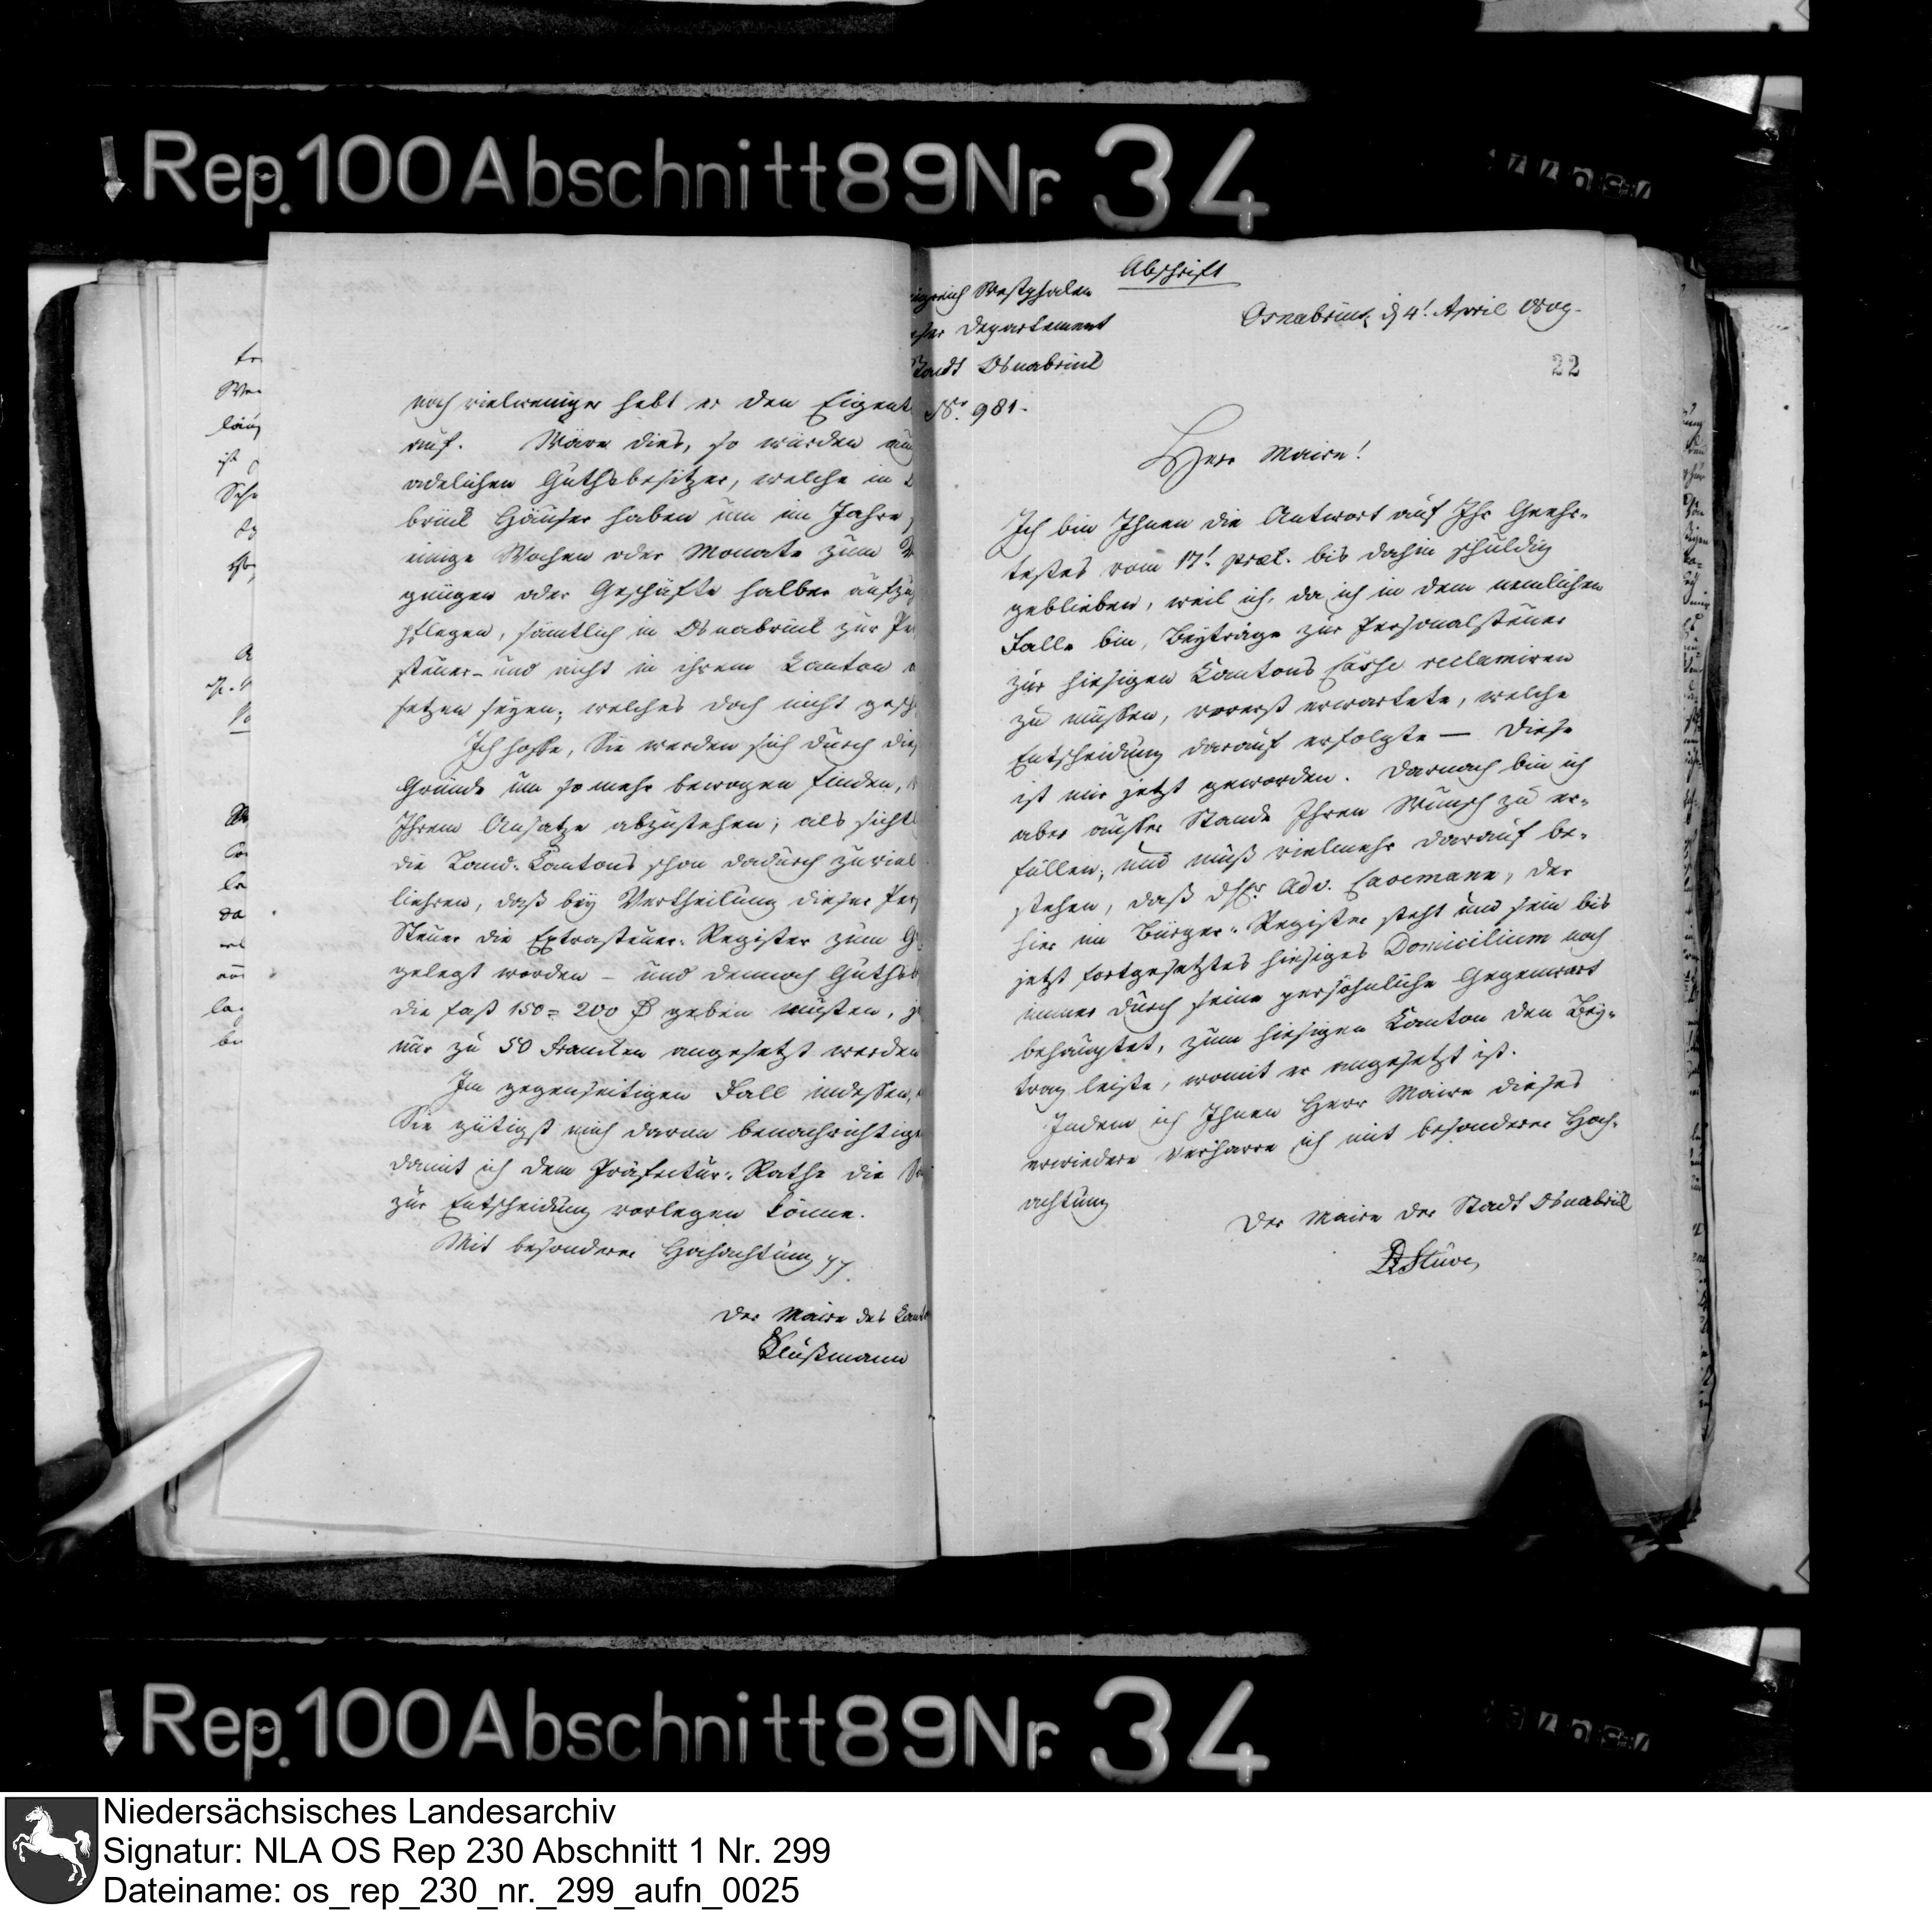 Rep. 100 Abschnitt 89 Nr. 34
noch vielweniger hebt er den Eigent
auf. Wäre dies, so würden auch
adelichen Guthsbesitzer, welche in
brück Häuser haben um im Jahre
einige Wochen oder Monate zum
gnügen oder Geschäfte halber aufzu
pflegen, sämtlich in Osnabrück zur Per
steuer und nicht in ihrem Kanton
setzen seyen; welches doch nicht gesch
Ich hoffe, Sie werden sich durch dies
Gründe um so mehr bewogen finden,
Ihrem Ansatze abzustehen; als sicht
die Land-Kantons schon dadurch zu viel
liehren, daß bey Vertheilung dieser Per
Steuer die Extrasteuer-Register zum
gelegt worden – und dennoch Guths
die fast 150 = 200 geben musten,
nur zu 50 Francken angesetzt werden
Im gegenseitigen Fall indessen,
Sie gütigst mich davon benachrichtigen
damit ich dem Präfectur-Rathe die
zur Entscheidung vorlegen könne.
Mit besonderer Hochachtung
Der Maire des Kant
Klußmann
Abschrift
igreich Westphalen
Departement
Stadt Osnabrück
No. 981.
Osnabrück, d 4t. April 1809.
22
Herr Maire!
Ich bin Ihnen die Antwort auf Ihr Geehr-
testes vom 17t. praet. bis dahin schuldig
geblieben, weil ich, da ich in dem nemlichen
Falle bin, Beyträge zur Personalsteuer
zur hiesigen Kantons Casse reclamiren
zu müssen, vorerst erwartete, welche
Entscheidung darauf erfolgte — Diese
ist mir jetzt geworden. Darnach bin ich
aber ausser Stande Ihren Wunsch zu er-
füllen, und muß vielmehr darauf be-
stehen, daß Adv. Cavemann, der
hier im Bürger-Register steht und sein bis
jetzt fortgesetztes hiesiges Domicilium noch
immer durch seine persöhnliche Gegenwart
behauptet, zum hiesigen Kanton den Bey-
trag leiste, womit er angesetzt ist.
Indem ich Ihnen Herr Maire dieses
erwiedere verharre ich mit besonderer Hoch-
achtung
Der Maire der Stadt Osnabrück
Stüve
Rep. 100 Abschnitt 89 Nr. 34
Niedersächsisches Landesarchiv
Signatur: NLA OS Rep 230 Abschnitt 1 Nr. 299
Dateiname: os_rep_230_nr._299_aufn_0025